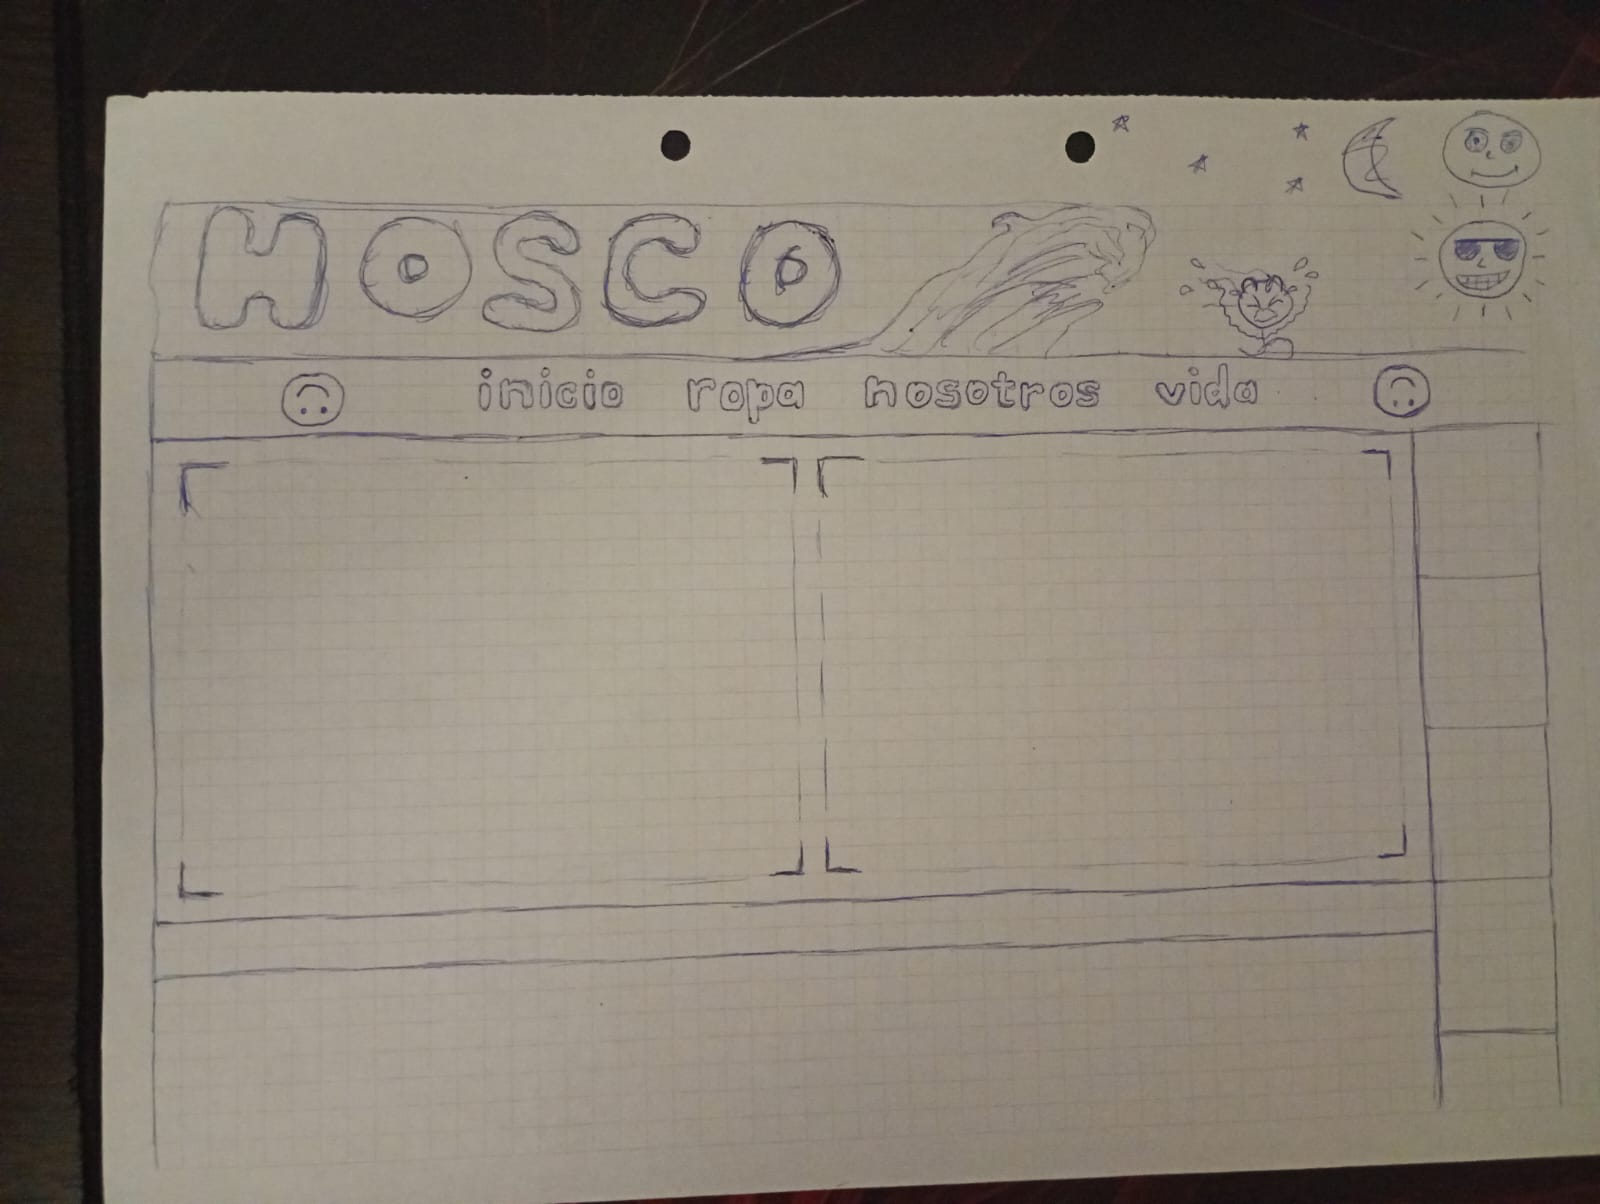 HOSCO
inicio ropa nosotros vida